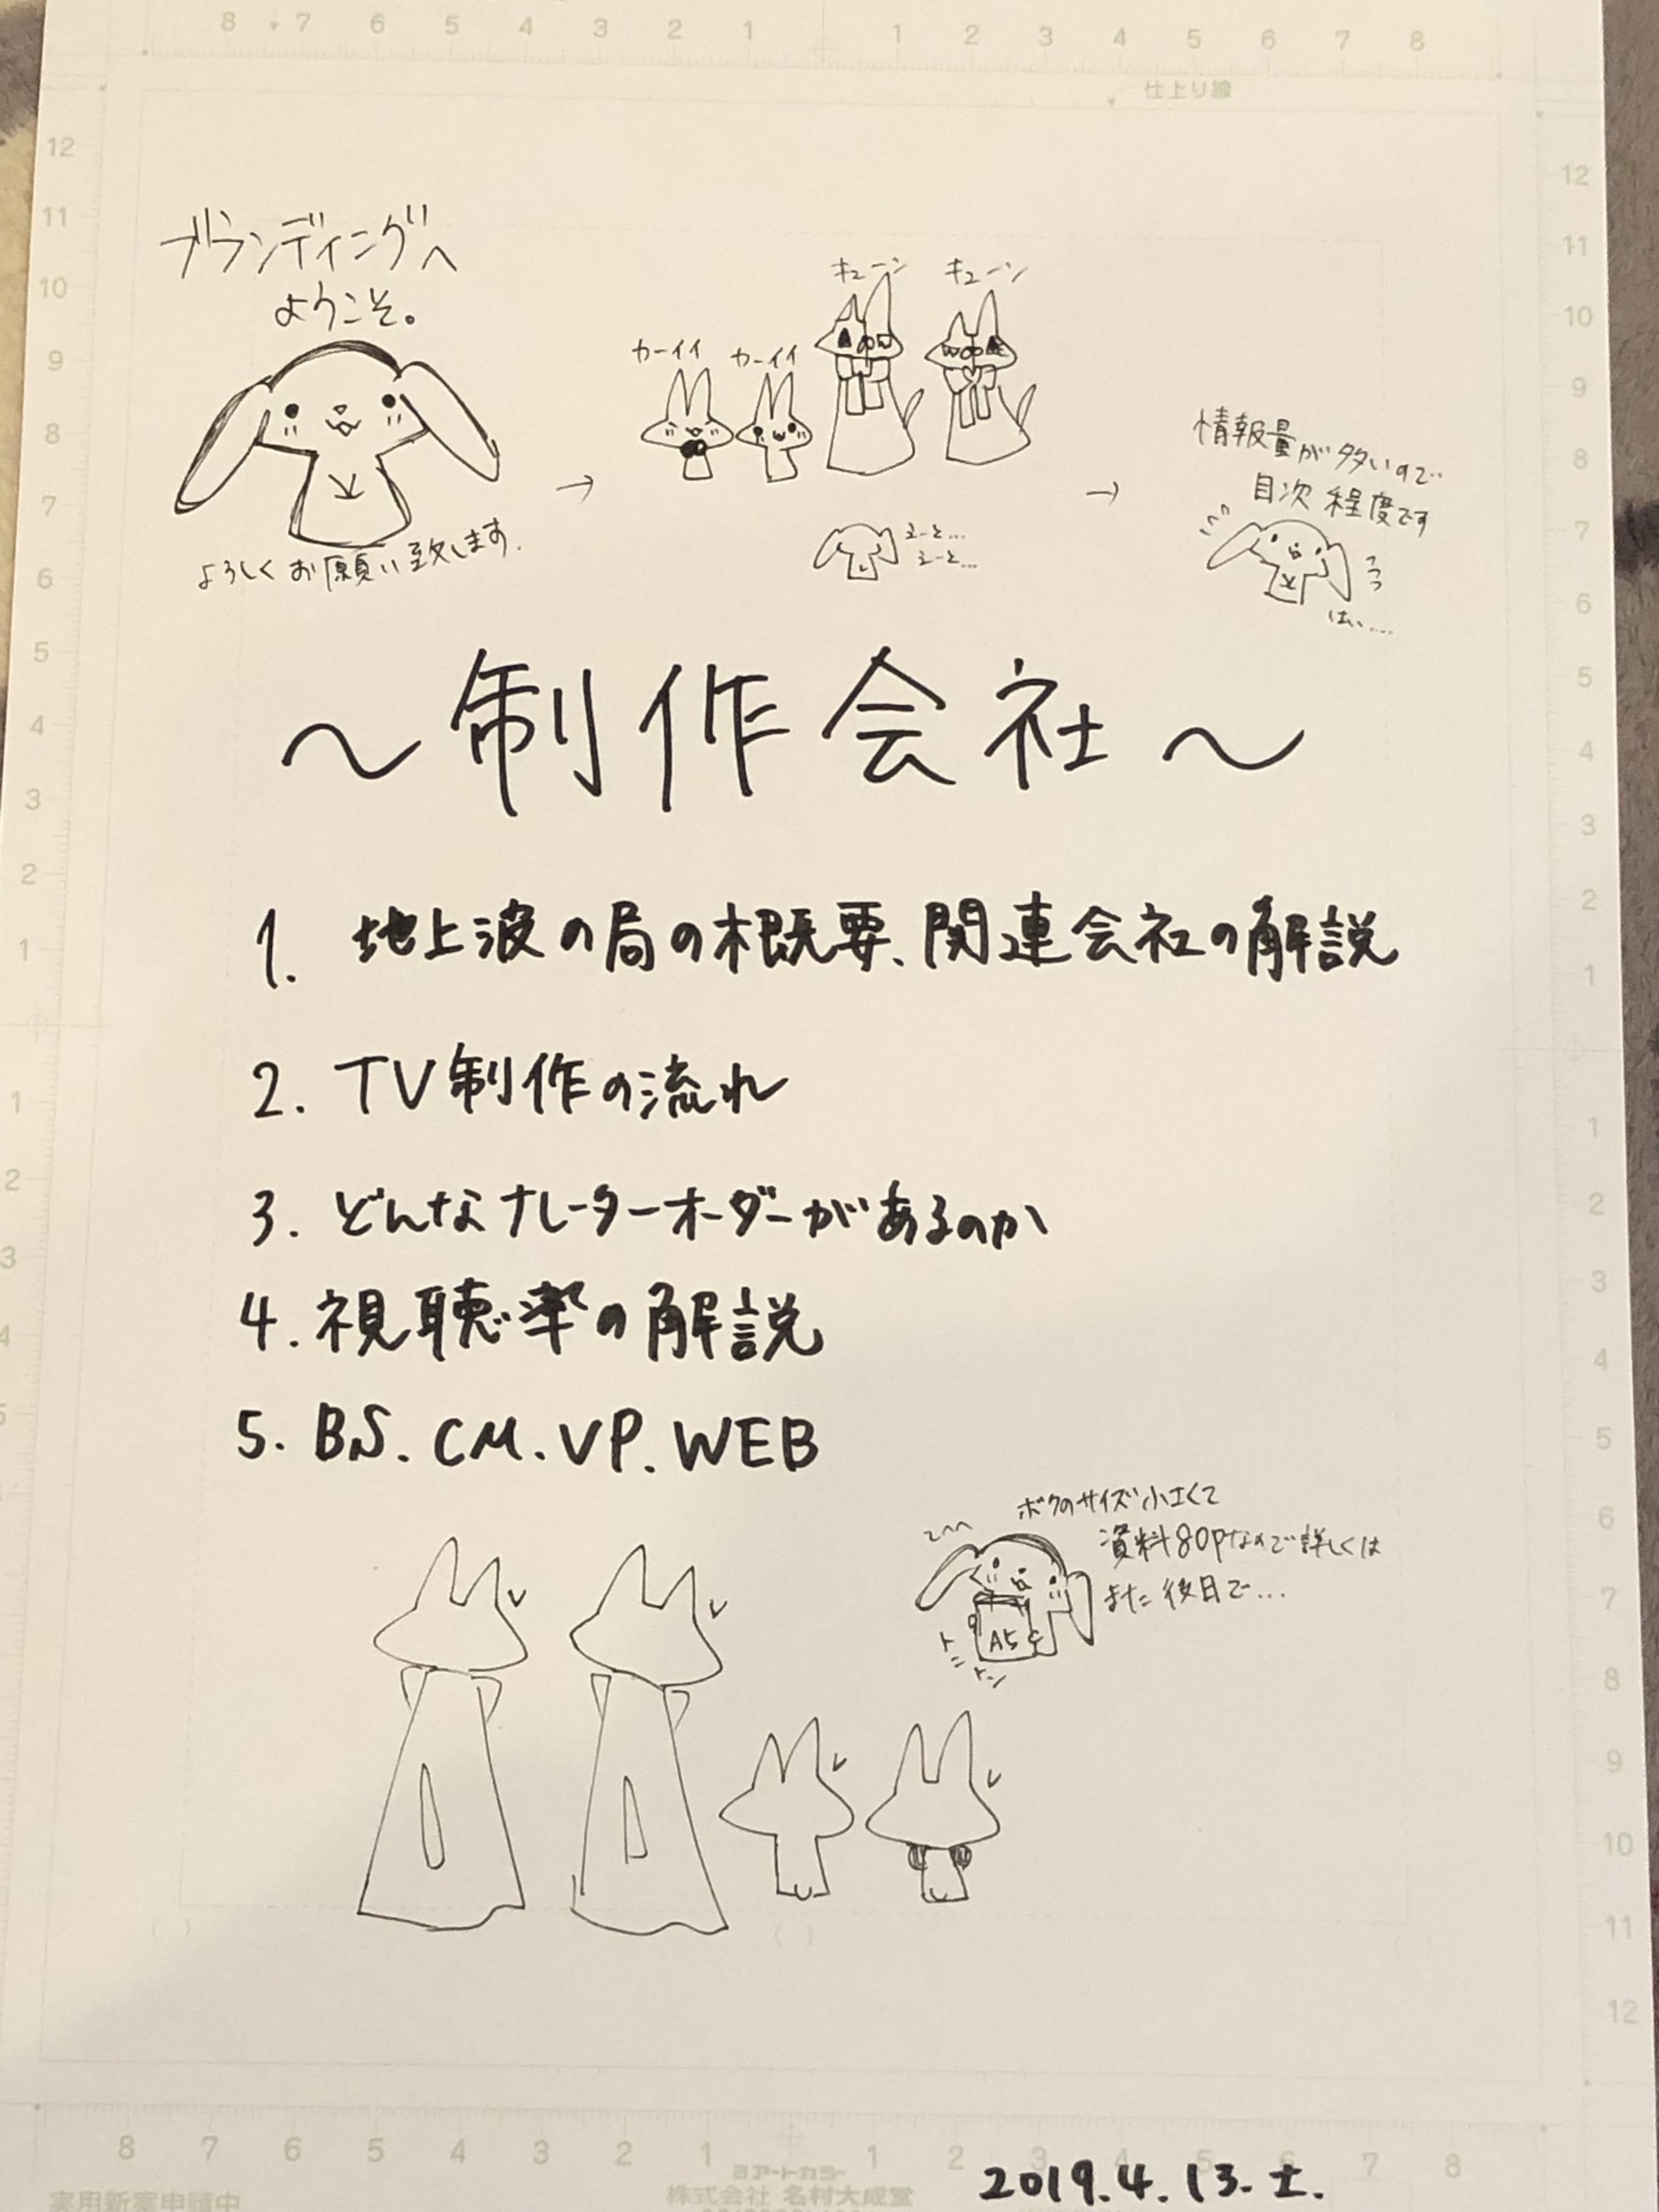 8 7 6 5 4 3 2 1 1 2 3 4 5 6 7 8
仕上り線
ブランディングへ
ようこそ。
よろしくお願い致します.
→
カーイイ カーイイ
キューン キューン
えーと…
えーと…
→
情報量が多いので
目次程度です
はい....
〜制作会社〜
1. 地上波の局の概要、関連会社の解説
2. TV制作の流れ
3. どんなナレーターオーダーがあるのか
4. 視聴率の解説
5. BS. CM. VP. WEB
ボクのサイズ小さくて
資料80Pなので詳しくは
また後日で...
A5
トントン
12 11 10 9 8 7 6 5 4 3 2 1 1 2 3 4 5
12 11 10 9 8 7 6 5 4 3 2 1 1 2 3 4 5 6 7 8 9 10 11 12
8 7 6 5 4 3 2 1 1 2 3 4 5 6 7 8
アートカラー
株式会社 名村大成堂
実用新案申請中
2019.4.13.土.